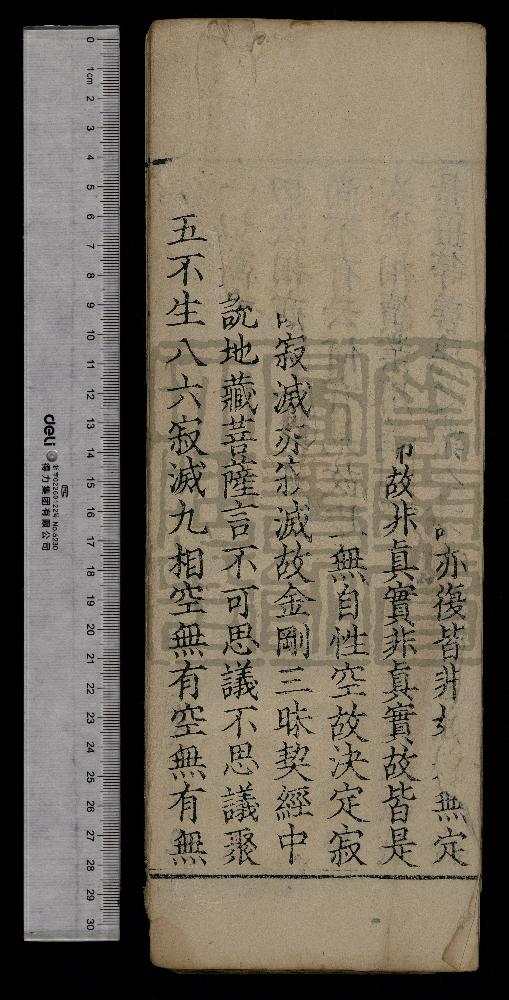 亦復皆非 無定
故非眞實非眞實故皆是
無自性空故決定寂
寂滅亦寂滅故金剛三昧契經中
說地藏菩薩言不可思議不思議聚
五不生八六寂滅九相空無有空無有無
0 1cm 2 3 4 5 6 7 8 9 10 11 12 13 14 15 16 17 18 19 20 21 22 23 24 25 26 27 28 29 30
deli
得力集团有限公司